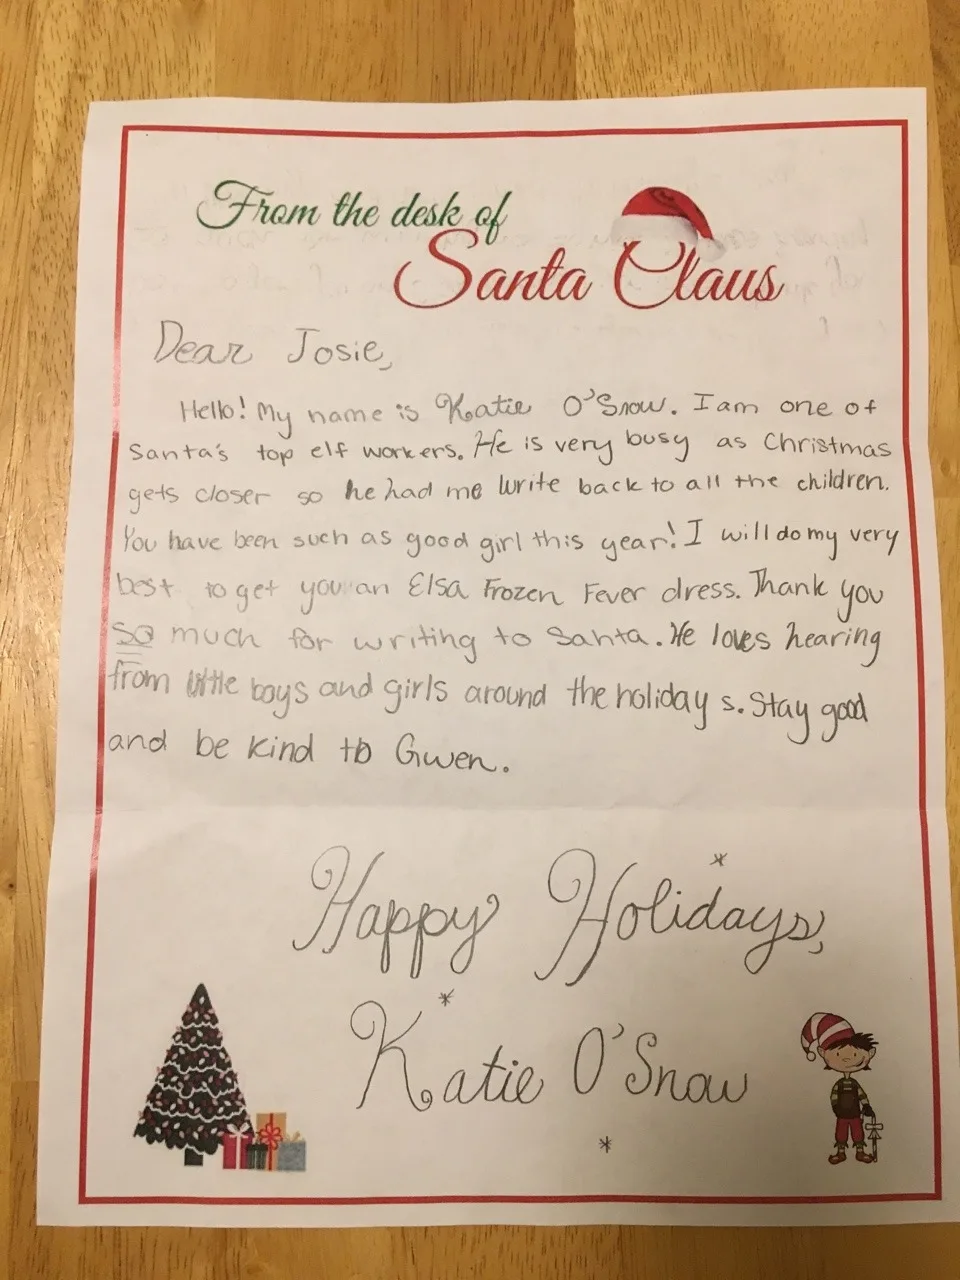 From the desk of
Santa Claus
Dear Josie,
Hello! My name is Katie O'Snow. I am one of
Santa's top elf workers. He is very busy as Christmas
gets closer so he had me write back to all the children.
You have been such as good girl this year! I will do my very
best to get you an Elsa Frozen Fever dress. Thank you
so much for writing to Santa. He loves hearing
from little boys and girls around the holiday s. Stay good
and be kind to Gwen.
Happy Holidays,
Katie O'Snow